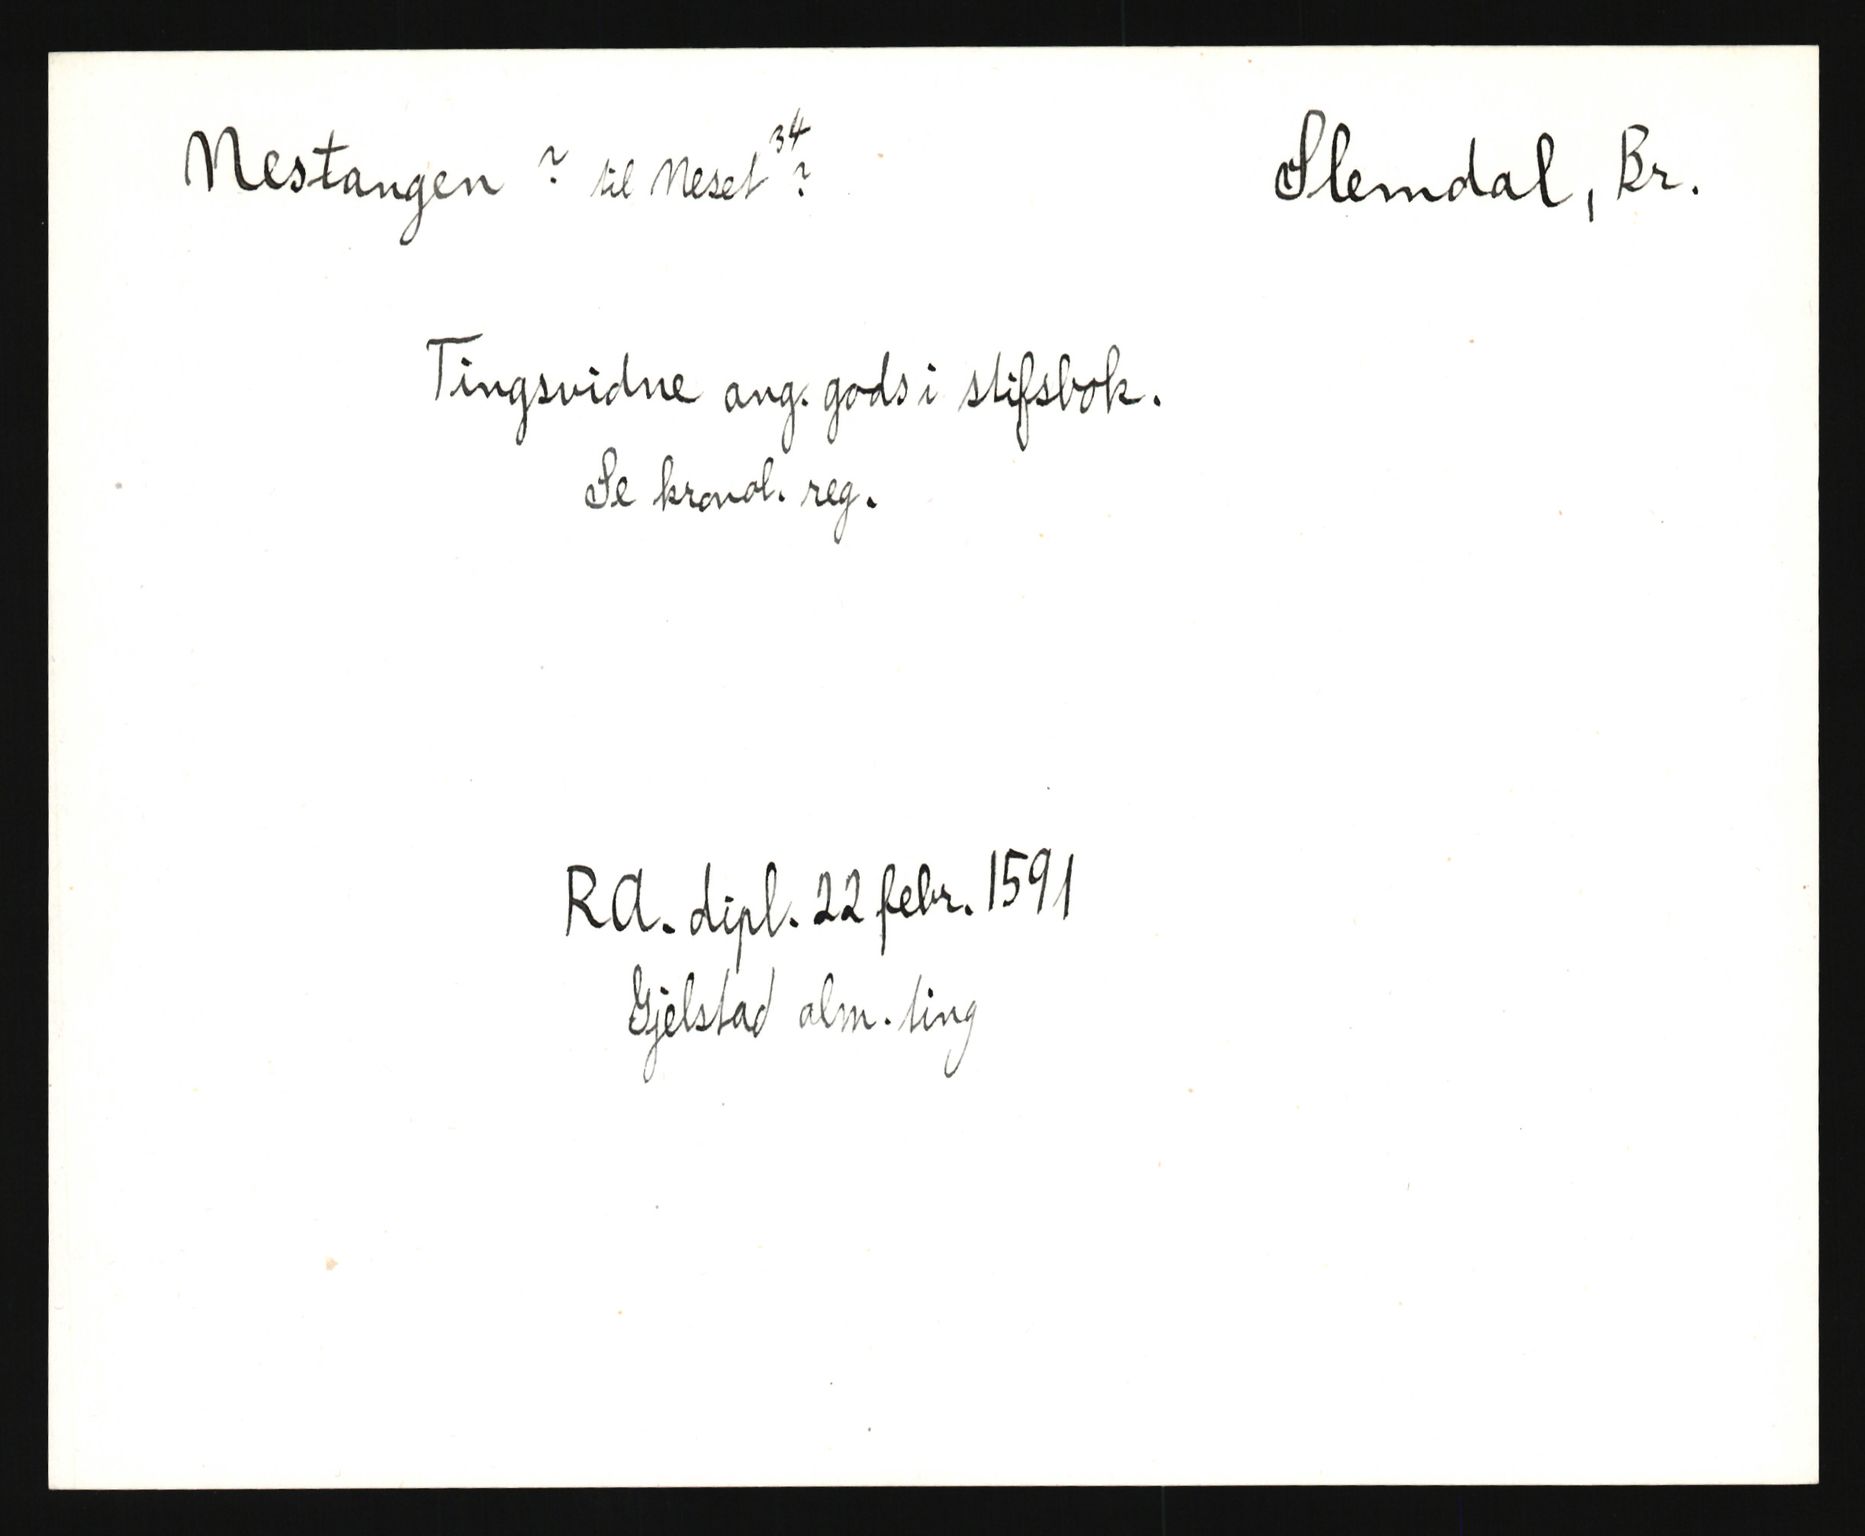 Nestangen ? til Neset 34 ? Slemdal, Br.
Tingsvidne ang. gods i stifsbok.
Se kronol. reg.
RA. dipl. 22 febr. 1591
Gjelstad alm. ting